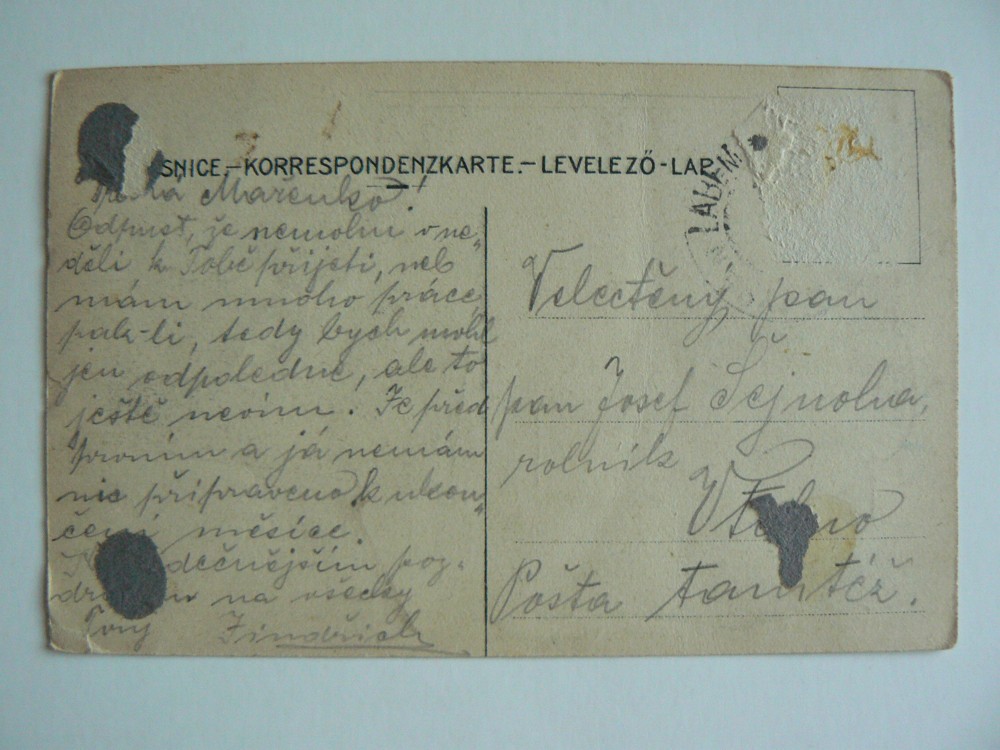 SNICE.–KORRESPONDENZKARTE.–LEVELEZŐ-LAP
LABEM
Mařenko!
Odpusť, že nemohu v ne„
děli k Tobě přijeti, neb
mám mnoho práce,
pak-li, tedy bych mohl
jen odpoledne, ale to
ještě nevím. Je před
prvním a já nemám
nic připraveno k ukon„
čení měsíce.
děčnějším poz„
na všecky
Tvůj Jindřich
Velectěný pan
pan Josef Šejnoha,
rolník
V
Pošta tamtéž.